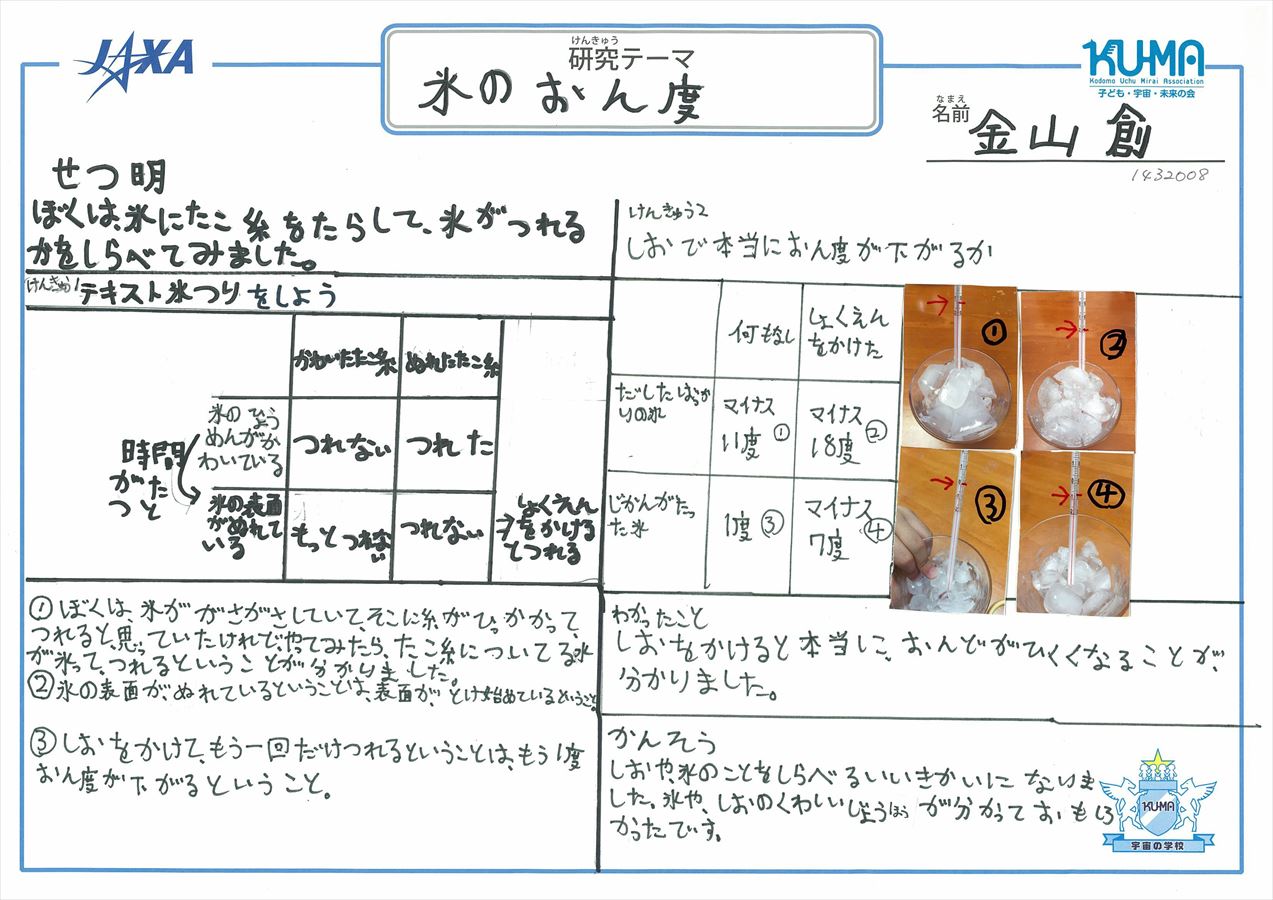 JAXA
けんきゅう
研究テーマ
氷のおん度
KU-MA
Kodomo Uchu Mirai Association
子ども・宇宙・未来の会
なまえ
名前 金山 創
1432008
せつ明
ぼくは、氷にたこ糸をたらして、氷がつれる
かをしらべてみました。
けんきゅう1 テキスト氷つりをしよう
かわいたたこ糸 ぬれたたこ糸
氷のひょう
めんがか
わいている
つれない つれた
時間
がた
つと
氷の表面
がぬれて
いる
もっとつれない
つれない
しょくえん
→をかける
とつれる
① ぼくは、氷ががさがさしていて、そこに糸がひっかかって、
つれると思っていたけれど、やってみたら、たこ糸についてる水
が氷って、つれるということが分かりました。
② 氷の表面が、ぬれているということは、表面が、とけ始めているということ。
③ しおをかけて、もう一回だけつれるということは、もう1度
おん度が下がるということ。
けんきゅう2
しおで本当におん度が下がるか
何もなし
しょくえん
をかけた
だしたばっか
りの氷
マイナス
11度 ①
マイナス
18度 ②
じかんがたっ
た氷
1度 ③
マイナス
7度 ④
①
②
③
④
わかったこと
しおをかけると本当に、おんどがひくくなることが、
分かりました。
かんそう
しおや、氷のことをしらべるいいきかいになりま
した。氷や、しおのくわしいじょうほうが分かっておもしろ
かったです。
KU-MA
宇宙の学校